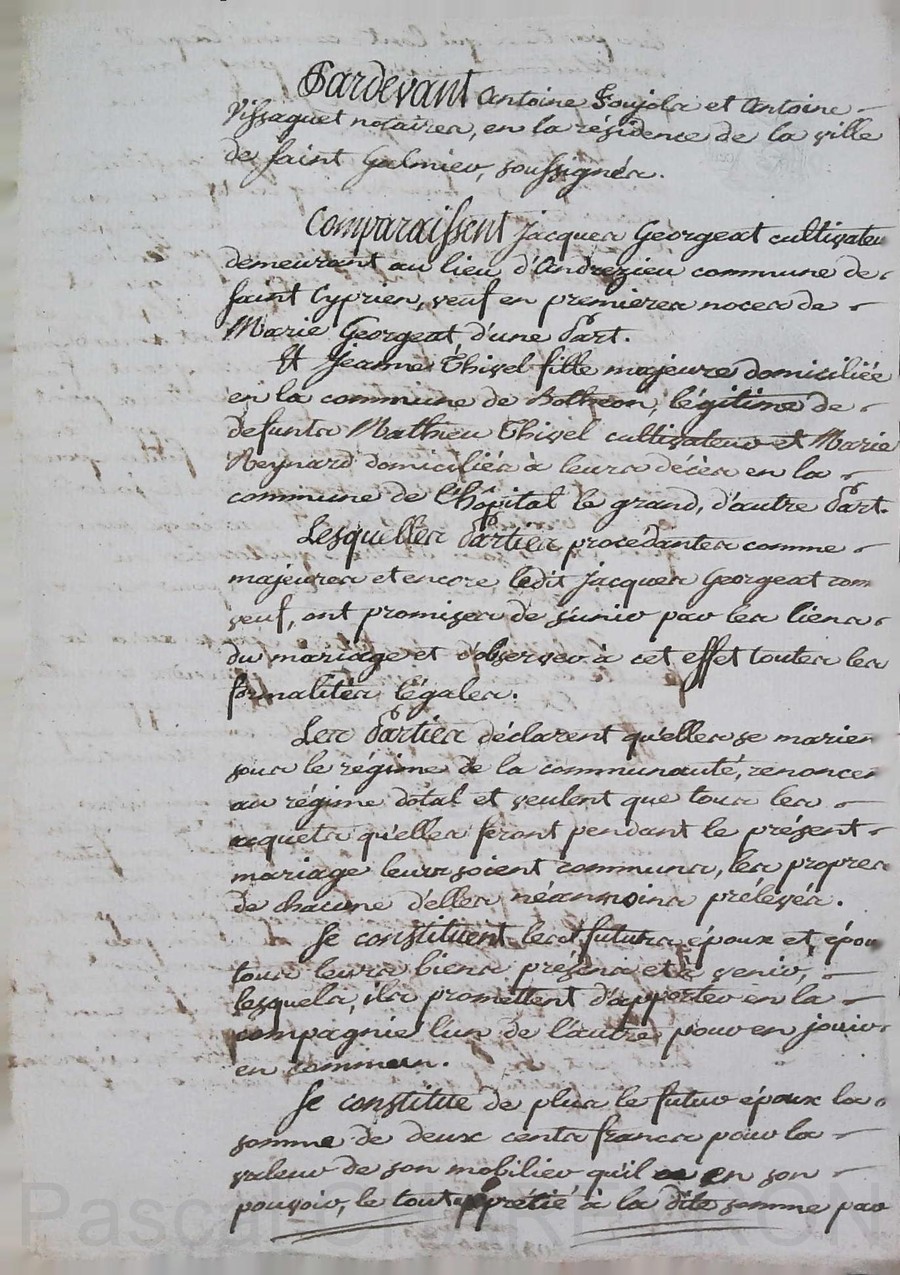 Pardevant Antoine Soujola et Antoine
Vissaguet notaires, en la résidence de la ville
de saint Galmier, soussignés.
Comparaissent Jacques Georgeat cultivateu
demeurant au lieu d'Andrezieu commune de
saint Cyprien, veuf en premieres noces de
Marie Georgeat, d'une Part.
Et Jeanne Thivel fille majeure domiciliée
en la commune de Botheon, légitime de
defunts Mathieu Thivel cultivateur et Marie
Reynard domiciliés à leurs décès en la
commune de l'hôpital le grand, d'autre Part.
Lesquelles Parties procédantes comme
majeures et encore ledit Jacques Georgeat com
veuf, ont promises de s'unir par les liens
du mariage et d'observer à cet effet toutes les
formalités légales.
Les Parties déclarent qu'elles se marien
sous le régime de la communauté, renoncen
au régime dotal et veulent que tous les
acquets qu'elles feront pendant le présent
mariage leurs soient communs, les propres
de chacune d'elles néanmoins prelevés.
Se constituent lesd. futurs époux et épou
tous leurs biens présens et à venir,
lesquels, ils promettent d'apporter en la
compagnie l'un de l'autre pour en jouir
en commun.
Se constitue de plus le futur époux la
somme de deux cents francs pour la
valeur de son mobilier qu'il a en son
pouvoir, le tout apprétié à la dite somme par
Pascal CHARETRON